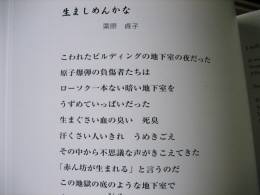 生ましめんかな
栗原 貞子
こわれたビルディングの地下室の夜だった
原子爆弾の負傷者たちは
ローソク一本ない暗い地下室を
うずめていっぱいだった
生まぐさい血の臭い 死臭
汗くさい人いきれ うめきごえ
その中から不思議な声がきこえてきた
「赤ん坊が生まれる」と言うのだ
この地獄の底のような地下室で